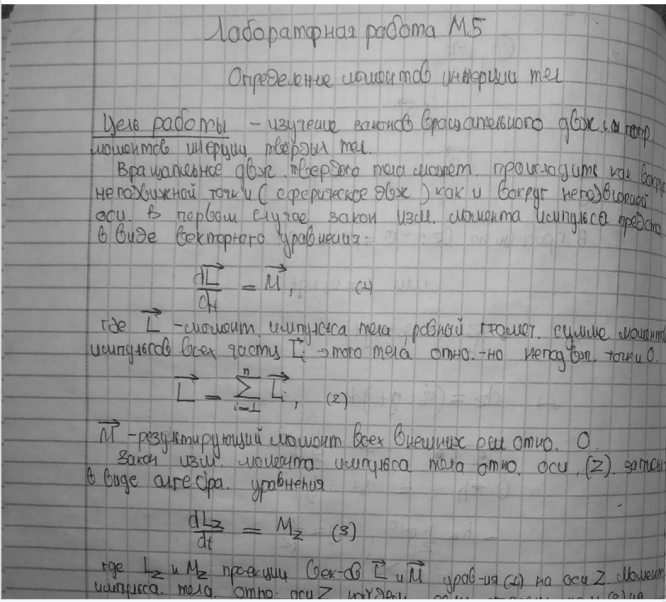 Лаборатрная работа М5
Определение моментов инерции тел
Цель работы – изучение законов вращательного движ. и опр
моментов инерции твердых тел.
Вращательное движ. твердого тела может происходить как вокруг
неподвижной точки (сферическое движ) как и вокруг неподвижной
оси. в первом случае закон изм. момента импульса предста
в виде векторного уравнения:
dL/dt = M, (1)
где L – момент импульса тела равный геомет. сумме момент
импульсов всех часты Li этого тела отно.-но неподвиж. точки О.
L = Σ Li, (2)
M – результирующий момент всех внешних сил отно. О.
Закон изм. момента импульса тела отно. оси (Z). запис
в виде алгебра. уравнения
dLz/dt = Mz (3)
где Lz и Mz проекции век-ов L и M урав-ия (1) на оси Z. Момент
импульса. тела. отно. оси Z